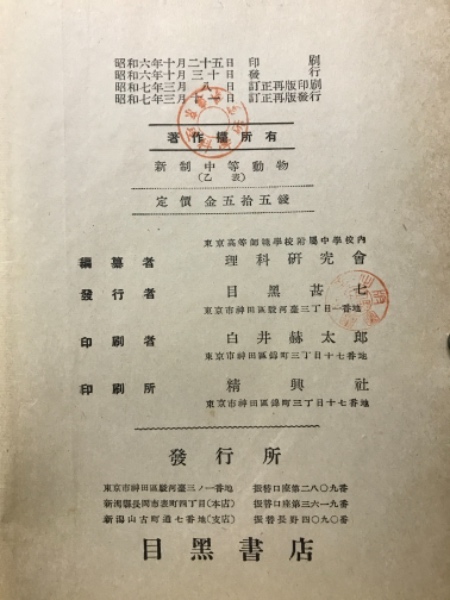 昭和六年十月二十五日 印刷
昭和六年十月三十日 發行
昭和七年三月八日 訂正再版印刷
昭和七年三月十一日 訂正再版發行
著作權所有
新制中等動物
(乙表)
定價 金五拾五錢
東京高等師範學校附屬中學校內
編纂者 理科硏究會
發行者 目黑甚七
東京市神田區駿河臺三丁目一番地
印刷者 白井赫太郎
東京市神田區錦町三丁目十七番地
印刷所 精興社
東京市神田區錦町三丁目十七番地
發行所
東京市神田區駿河臺三ノ一番地 振替口座第二八〇九番
新潟縣長岡市表町四丁目(本店) 振替口座第三六一九番
新潟市古町通七番地(支店) 振替長野四〇九〇番
目黑書店